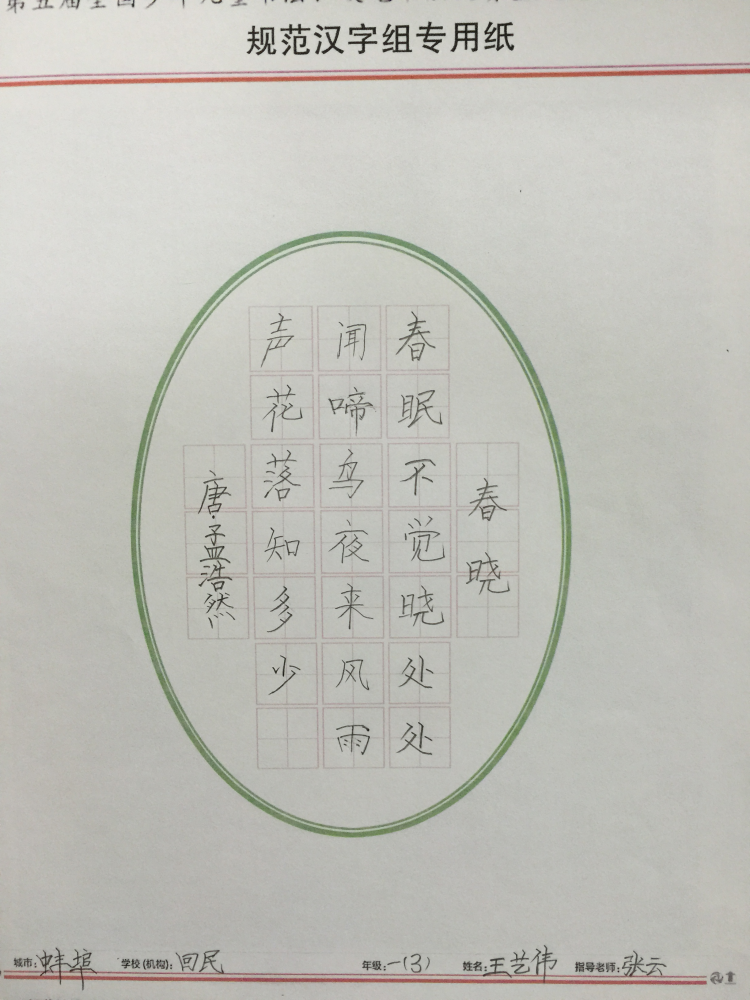 第五届全国少年儿童书法
规范汉字组专用纸
春晓
春眠不觉晓处处
闻啼鸟夜来风雨
声花落知多少
唐·孟浩然
城市:蚌埠 学校(机构):回民 年级:一(3) 姓名:王艺伟 指导老师:张云